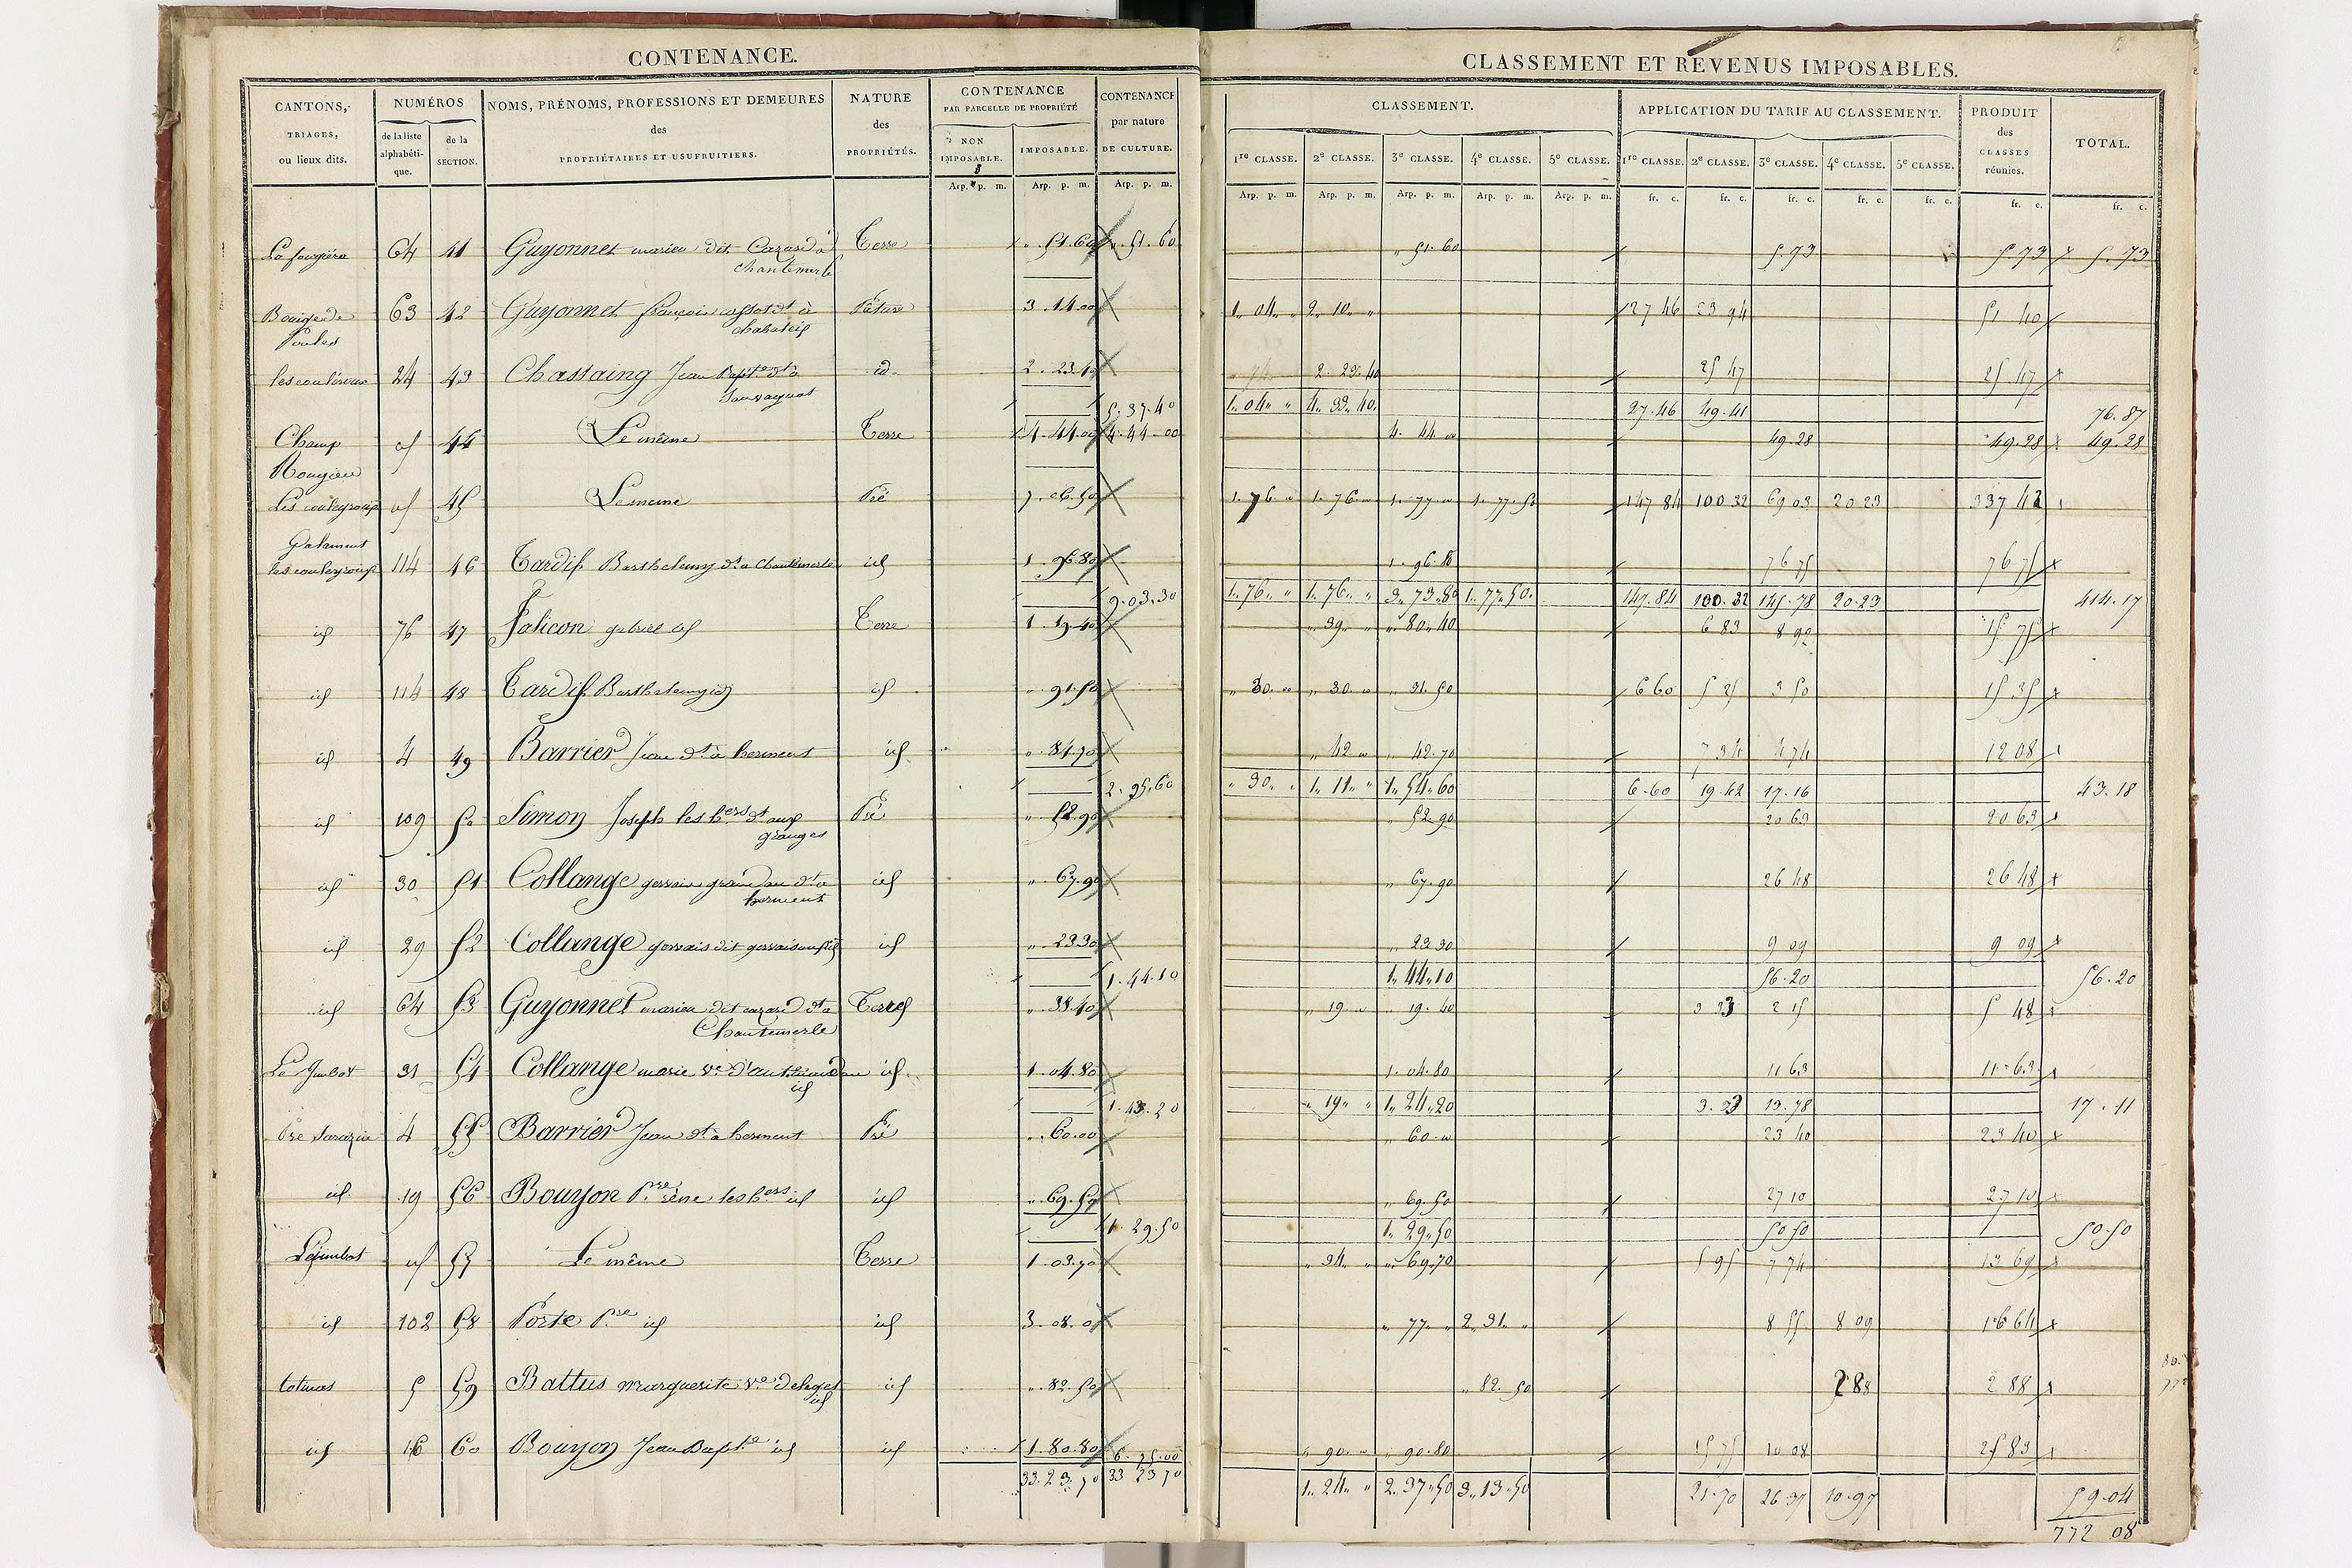 CONTENANCE.
CANTONS, TRIAGES, ou lieux dits.
NUMÉROS
de la liste alphabétique.
de la SECTION.
NOMS, PRÉNOMS, PROFESSIONS ET DEMEURES des PROPRIÉTAIRES ET USUFRUITIERS.
NATURE des PROPRIÉTÉS.
CONTENANCE PAR PARCELLE DE PROPRIÉTÉ
NON IMPOSABLE.
IMPOSABLE.
CONTENANCE par nature DE CULTURE.
Arp. p. m. Arp. p. m. Arp. p. m.
64 41 Guyonnet marien dit Cazard à Terre 51.60 51.60
chantemerle
63 42 Guyonnet françois Pature 3.14.00
24 43 Chassaing Jean Bapte dt à id. 2.23.40
Sauvagnat
5.37.40
Champ id 44 Le même Terre 4.44.00 4.44.00
Rougieu
id 45 Le meme Pré 7.06.50
114 46 Tardif Barthelemy dt a Chantemerle id 1.96.80
9.03.30
id 76 47 Jalicon gabriel id Terre 1.19.40
id 114 48 Tardif Barthelemy id id 91.50
id 4 49 Barrier Jean dt à herment id 84.70
2.95.60
id 109 50 Simon Joseph les hers dt aux Pré 52.90
granges
id 30 51 Collange gervais dt a id 67.90
herment
id 29 52 Collange gervais dit id 23.30
1.44.10
id 64 53 Guyonnet marien dit cazard dt a Terre 38.40
Chantemerle
Le Jimbot 31 54 Collange marie ve id 1.04.80
id
1.43.20
Pré Sarazin 4 55 Barrier Jean dt à herment Pré 60.00
id 19 56 Bouyon Prre les hers id id 69.50
1.29.50
Lejimbot id 57 Le même Terre 1.03.70
id 102 58 Porte Prre id id 3.08.0
5 59 Battus marguerite ve id 82.50
id
id 16 60 Bouyon Jean Bapte id id 1.80.80 6.75.00
33.23.70 33 23 70
CLASSEMENT ET REVENUS IMPOSABLES.
CLASSEMENT.
APPLICATION DU TARIF AU CLASSEMENT.
PRODUIT des CLASSES réunies.
TOTAL.
1re CLASSE. 2e CLASSE. 3e CLASSE. 4e CLASSE. 5e CLASSE. 1re CLASSE. 2e CLASSE. 3e CLASSE. 4e CLASSE. 5e CLASSE.
Arp. p. m. Arp. p. m. Arp. p. m. Arp. p. m. Arp. p. m. fr. c. fr. c. fr. c. fr. c. fr. c. fr. c. fr. c.
" 51.60 5.73 5 73 5.73
1.. 04.. " 2.. 10.. " 27 46 23 94 51 40
2.. 23.. 40 25 47 25 47
1.. 04.. " 4.. 33.. 40. 27.46 49.41 76.87
4.. 44 49.28 49.28 49.28
1.. 76 1.. 76 1.. 77 1.. 77.. 50 147 84 100 32 69 03 20 23 337 42
1.. 96.. 80 76 75 76 75
1.. 76.. " 1.. 76.. " 3.. 73.. 80 1.. 77.. 50. 147.84 100.32 145.78 20.23 414.17
" 39.. " " 80.. 40 6 83 8 92 15 75
" 30 " 30 " 31.50 6 60 5 25 3 50 15 35
" 42 " 42.70 7 34 4 74 12 08
" 30.. " 1.. 11.. " 1.. 54.. 60 6.60 19.42 17.16 43.18
" 52.90 20 63 20 63
" 67.90 26 48 26 48
" 23 30 9 09 9 09
1.. 44.. 10 56.20 56.20
" 19 " 19.40 3 33 2 15 5 48
1.. 04.80 11 63 11.63
" 19.. " 1.. 24.. 20 3.33 13.78 17.11
" 60 23 40 23 40
" 69.50 27 10 27 10
1.. 29.. 50 50 50 50 50
" 34.. " " 69.70 5 95 7 74 13 69
" 77.. " 2.. 31.. " 8 55 8 09 16 64
" 82.. 50 2 88 2 88
" 90 " 90.80 15 75 10 08 25 83
1.. 24.. " 2.. 37.. 50 3.. 13.. 50 21.70 26.37 10.97 59.04
772 08